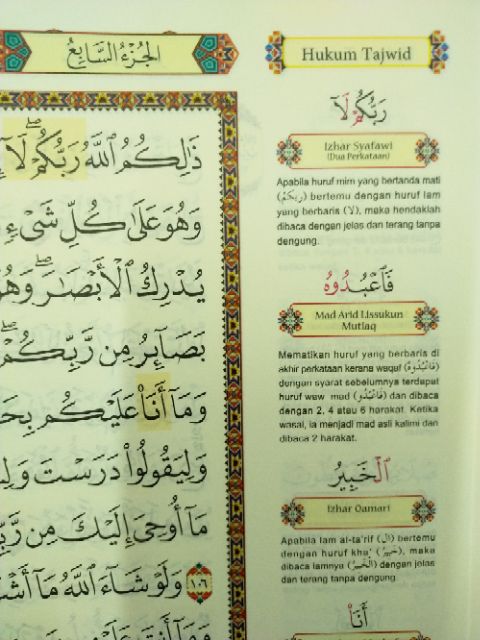 الجزء السابع
ذَٰلِكُمُ ٱللَّهُ رَبُّكُمْ ۖ لَآ
وَهُوَ عَلَىٰ كُلِّ شَىْءٍ
يُدْرِكُ ٱلْأَبْصَٰرَ ۖ وَهُوَ
بَصَآئِرُ مِن رَّبِّكُمْ ۖ
وَمَآ أَنَا۠ عَلَيْكُم
وَلِيَقُولُوا۟ دَرَسْتَ
مَآ أُوحِىَ إِلَيْكَ مِن
١٠٦ وَلَوْ شَآءَ ٱللَّهُ مَآ
Hukum Tajwid
رَبُّكُمْ لَآ
Izhar Syafawi
(Dua Perkataan)
Apabila huruf mim yang bertanda mati
(رَبُّكُمْ) bertemu dengan huruf lam
yang berbaris (لَا), maka hendaklah
dibaca dengan jelas dan terang tanpa
dengung.
فَٱعْبُدُوهُ
Mad Arid Lissukun
Mutlaq
Mematikan huruf yang berbaris di
akhir perkataan kerana waqaf (فَاعْبُدُوهُ)
dengan syarat sebelumnya terdapat
huruf waw mad (فَاعْبُدُو) dan dibaca
dengan 2, 4 atau 6 harakat. Ketika
wasal, ia menjadi mad asli kalimi dan
dibaca 2 harakat.
ٱلْخَبِيرُ
Izhar Qamari
Apabila lam al-ta'rif (ال) bertemu
dengan huruf kha' (خَبِيرُ), maka
dibaca lamnya (الْخَبِيرُ) dengan jelas
dan terang tanpa dengung
أَنَا۠